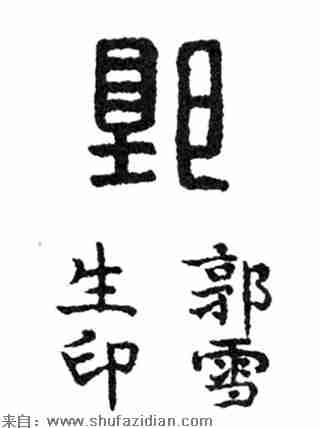 郭
郭雪
生印
来自：www.shufazidian.com